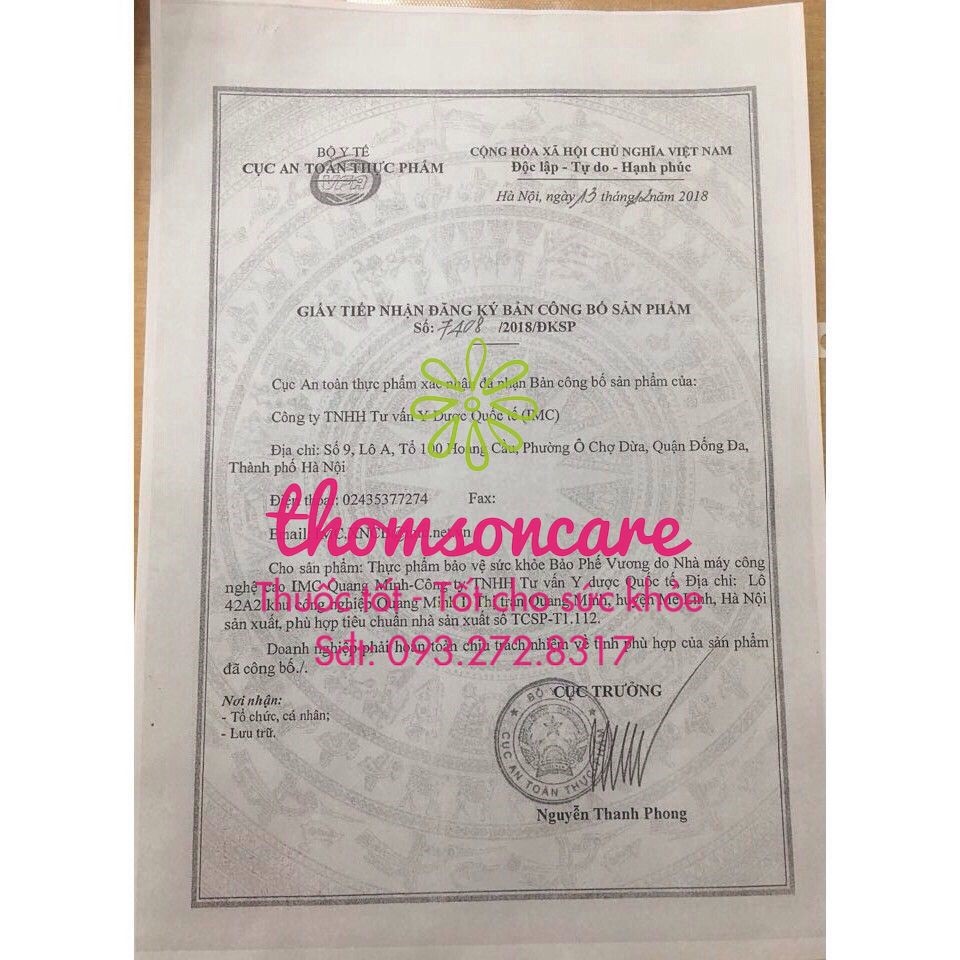 BỘ Y TẾ
CỤC AN TOÀN THỰC PHẨM
VFA
CỘNG HÒA XÃ HỘI CHỦ NGHĨA VIỆT NAM
Độc lập - Tự do - Hạnh phúc
Hà Nội, ngày 13 tháng 12 năm 2018
GIẤY TIẾP NHẬN ĐĂNG KÝ BẢN CÔNG BỐ SẢN PHẨM
Số: 7408 /2018/ĐKSP
Cục An toàn thực phẩm xác nhận đã nhận Bản công bố sản phẩm của:
Công ty TNHH Tư vấn Y Dược Quốc tế (IMC)
Địa chỉ: Số 9, Lô A, Tổ 100 Hoàng Cầu, Phường Ô Chợ Dừa, Quận Đống Đa,
Thành phố Hà Nội
Điện thoại: 02435377274 Fax:
Email:
thomsoncare
Cho sản phẩm: Thực phẩm bảo vệ sức khỏe Bảo Phế Vương do Nhà máy công
nghệ cao IMC Quang Minh-Công ty TNHH Tư vấn Y dược Quốc tế, Địa chỉ: Lô
Thuốc tốt - Tốt cho sức khỏe
42A2 khu công nghiệp Quang Minh, Thị trấn Quang Minh, huyện Mê Linh, Hà Nội
sản xuất, phù hợp tiêu chuẩn nhà sản xuất số TCSP-T1.112.
Doanh nghiệp phải hoàn toàn chịu trách nhiệm về tính phù hợp của sản phẩm
Sdt: 093.272.8317
đã công bố./.
Nơi nhận:
- Tổ chức, cá nhân;
- Lưu trữ.
CỤC TRƯỞNG
BỘ Y TẾ
CỤC AN TOÀN THỰC PHẨM
Nguyễn Thanh Phong